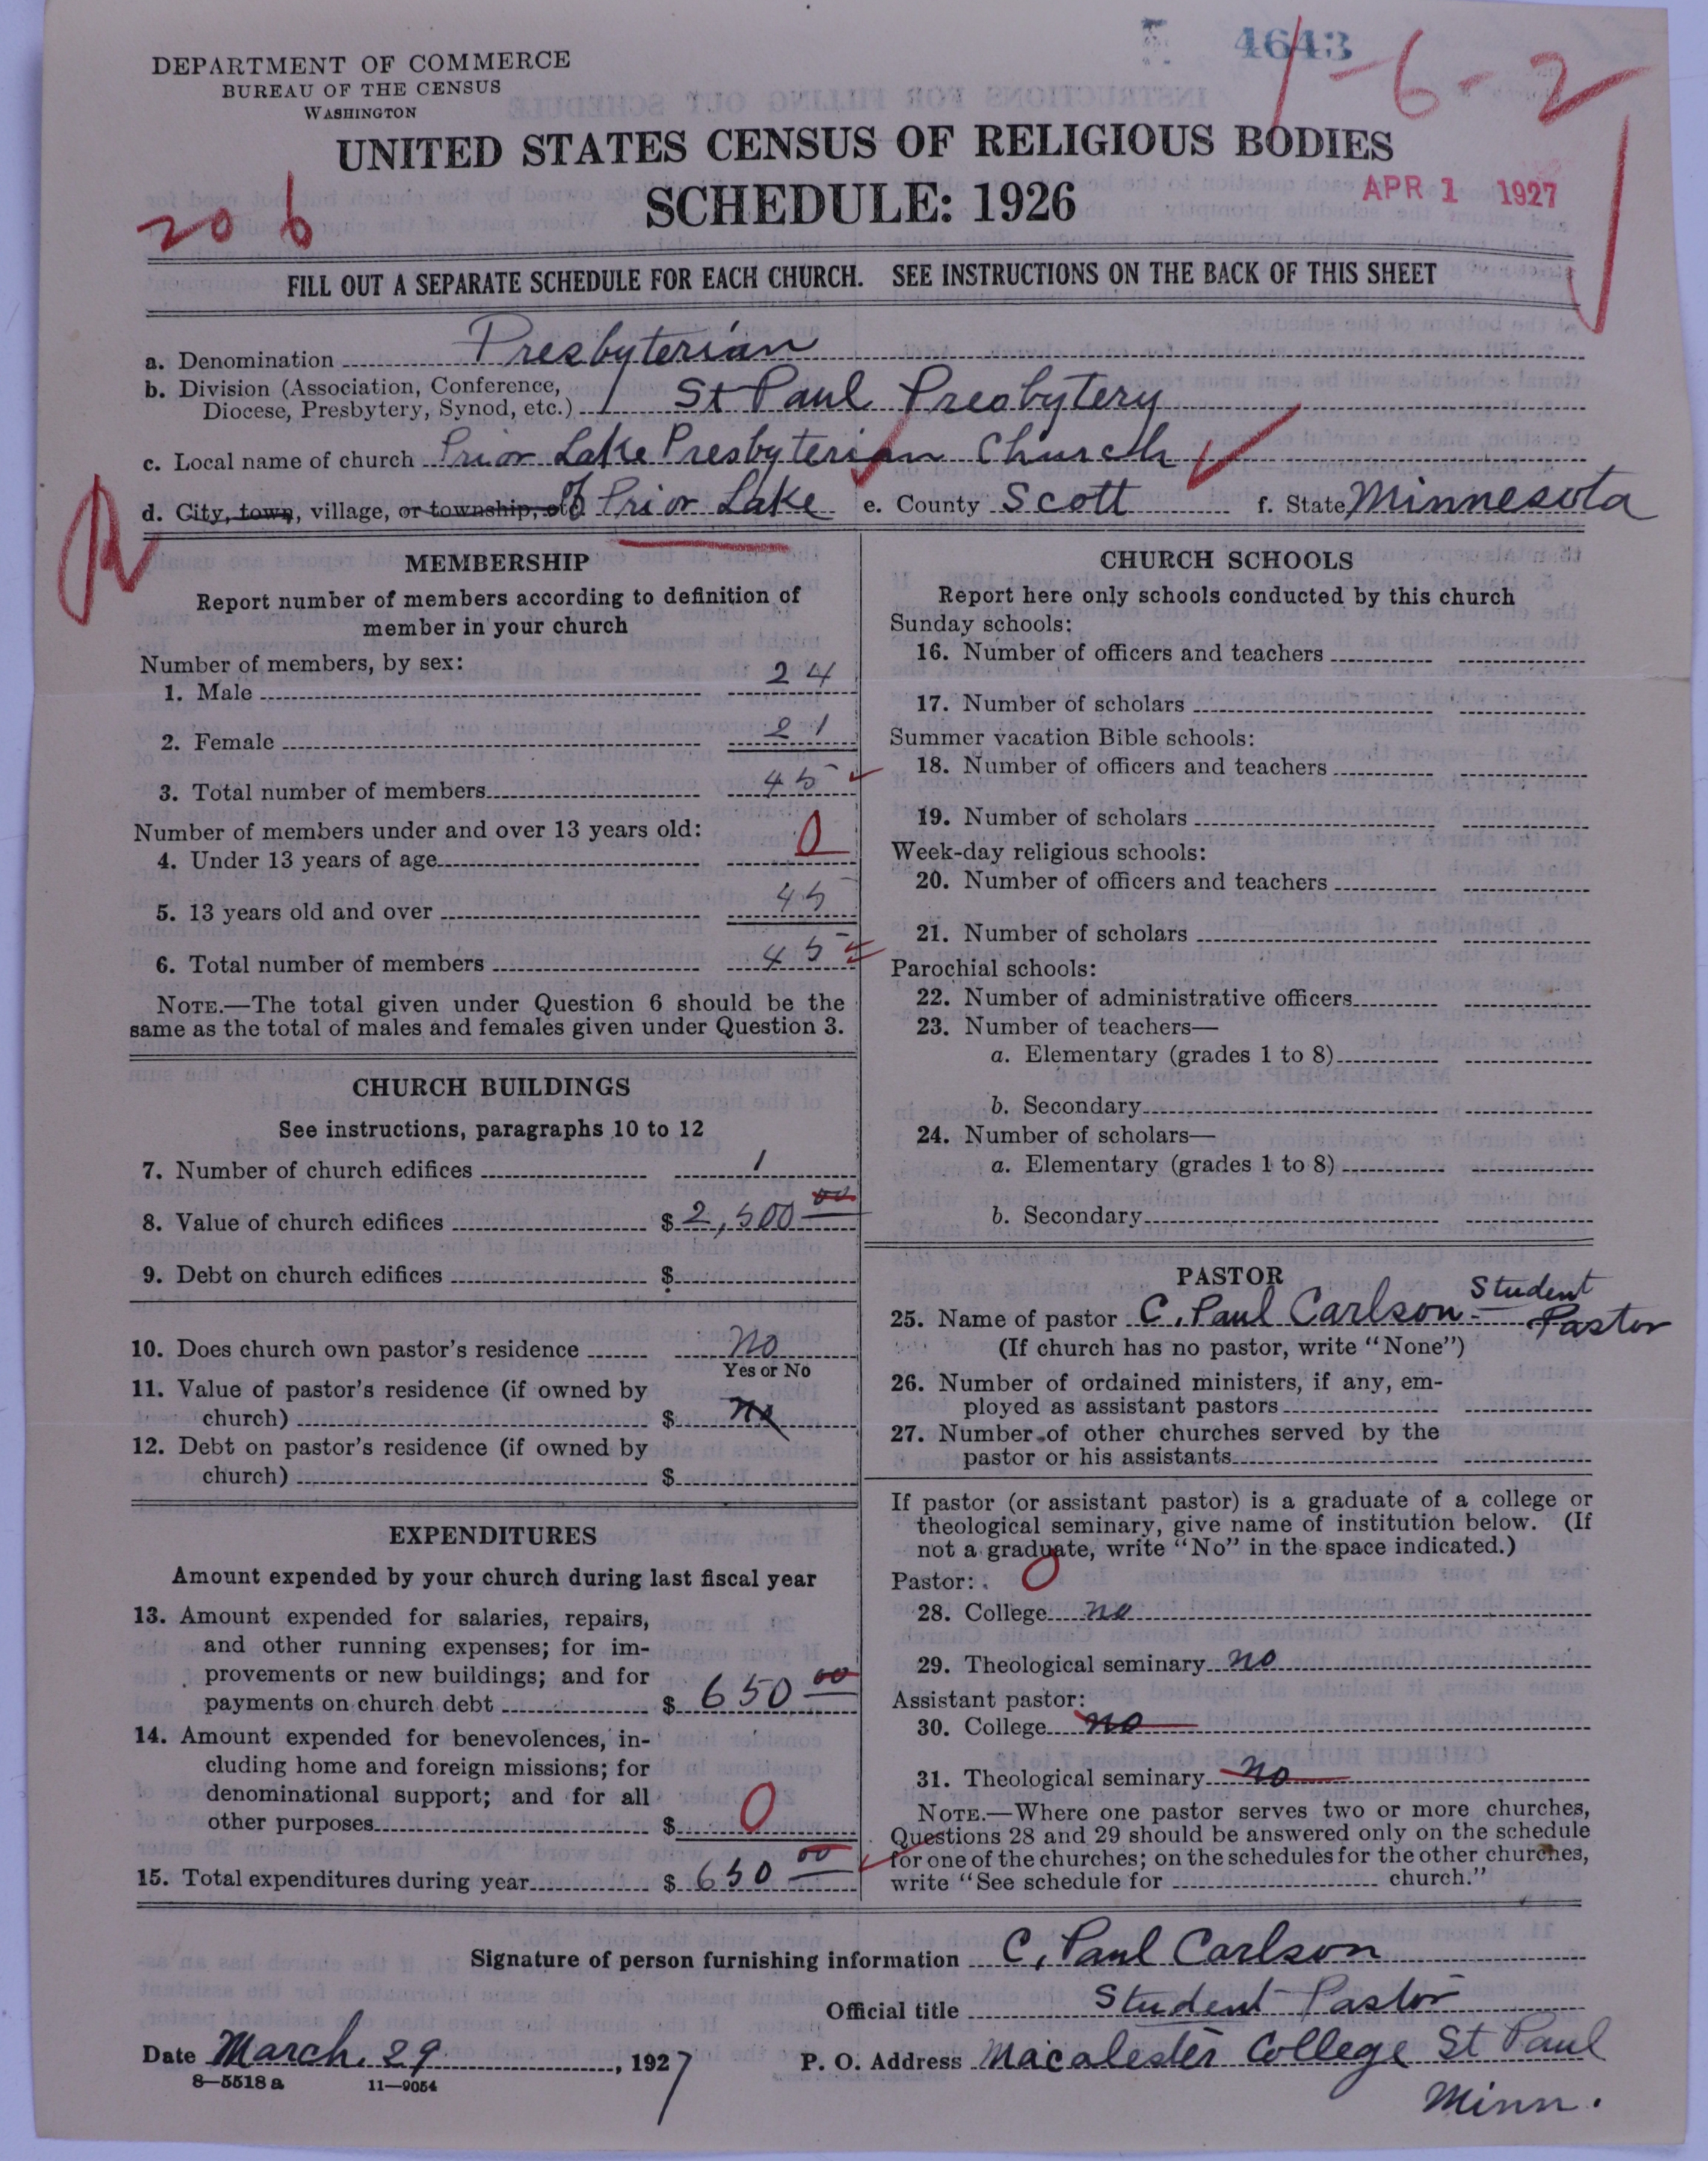 4643
1-6-2
DEPARTMENT OF COMMERCE
BUREAU OF THE CENSUS
WASHINGTON
UNITED STATES CENSUS OF RELIGIOUS BODIES
SCHEDULE: 1926
APR 1 1927
20 6
FILL OUT A SEPARATE SCHEDULE FOR EACH CHURCH. SEE INSTRUCTIONS ON THE BACK OF THIS SHEET
a. Denomination Presbyterian
b. Division (Association, Conference,
Diocese, Presbytery, Synod, etc.) St Paul Presbytery
c. Local name of church Prior Lake Presbyterian Church
d. City, town, village, or township, etc. of Prior Lake e. County Scott f. State Minnesota
R
MEMBERSHIP
Report number of members according to definition of
member in your church
Number of members, by sex:
1. Male 24
2. Female 21
3. Total number of members 45
Number of members under and over 13 years old:
4. Under 13 years of age 0
5. 13 years old and over 45
6. Total number of members 45
NOTE.—The total given under Question 6 should be the
same as the total of males and females given under Question 3.
CHURCH BUILDINGS
See instructions, paragraphs 10 to 12
7. Number of church edifices 1
8. Value of church edifices $ 2,500 00
9. Debt on church edifices $
10. Does church own pastor's residence No
Yes or No
11. Value of pastor's residence (if owned by
church) $ no
12. Debt on pastor's residence (if owned by
church) $
EXPENDITURES
Amount expended by your church during last fiscal year
13. Amount expended for salaries, repairs,
and other running expenses; for im-
provements or new buildings; and for
payments on church debt $ 650 00
14. Amount expended for benevolences, in-
cluding home and foreign missions; for
denominational support; and for all
other purposes $ 0
15. Total expenditures during year $ 650 00
CHURCH SCHOOLS
Report here only schools conducted by this church
Sunday schools:
16. Number of officers and teachers
17. Number of scholars
Summer vacation Bible schools:
18. Number of officers and teachers
19. Number of scholars
Week-day religious schools:
20. Number of officers and teachers
21. Number of scholars
Parochial schools:
22. Number of administrative officers
23. Number of teachers—
a. Elementary (grades 1 to 8)
b. Secondary
24. Number of scholars—
a. Elementary (grades 1 to 8)
b. Secondary
PASTOR
25. Name of pastor C. Paul Carlson - Student Pastor
(If church has no pastor, write "None")
26. Number of ordained ministers, if any, em-
ployed as assistant pastors
27. Number of other churches served by the
pastor or his assistants
If pastor (or assistant pastor) is a graduate of a college or
theological seminary, give name of institution below. (If
not a graduate, write "No" in the space indicated.)
Pastor: 0
28. College no
29. Theological seminary no
Assistant pastor:
30. College no
31. Theological seminary no
NOTE.—Where one pastor serves two or more churches,
Questions 28 and 29 should be answered only on the schedule
for one of the churches; on the schedules for the other churches,
write "See schedule for church."
Signature of person furnishing information C. Paul Carlson
Official title Student Pastor
Date March 29, 1927 P. O. Address Macalester College St Paul
Minn.
8—5518 a 11—9054